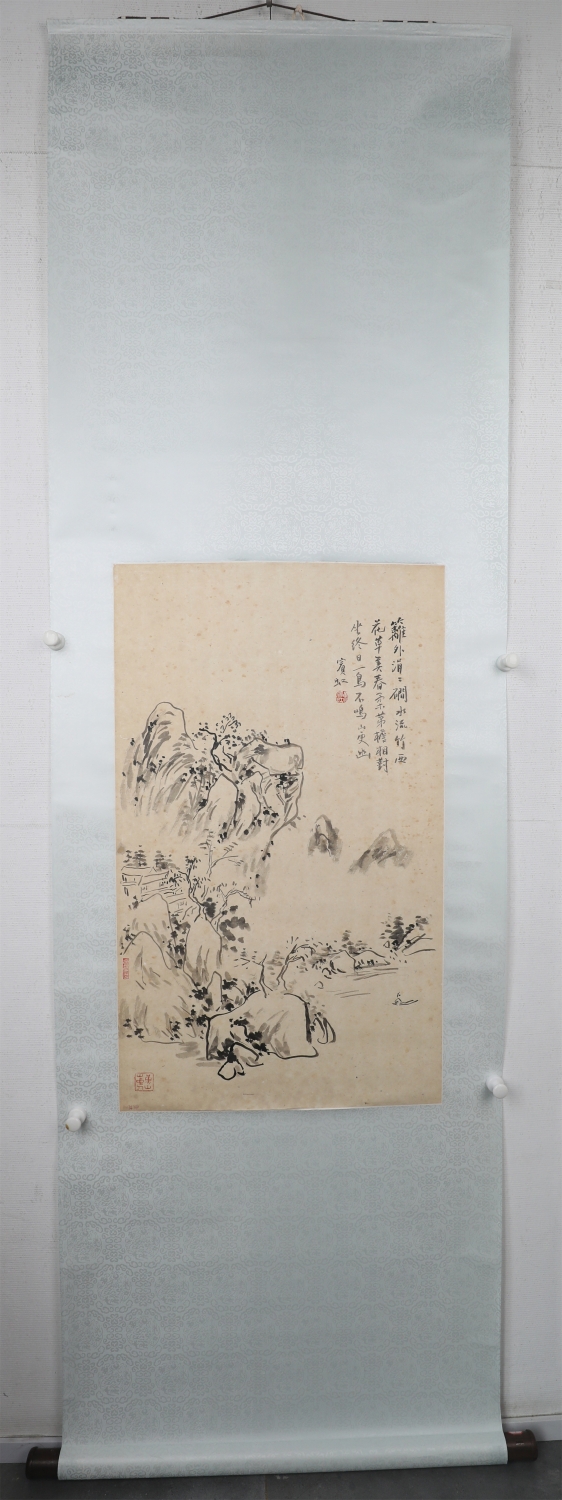 籬外涓〻磵水流竹西
花草美春柔茅檐相對
坐終日一鳥不鳴山更幽
賓虹